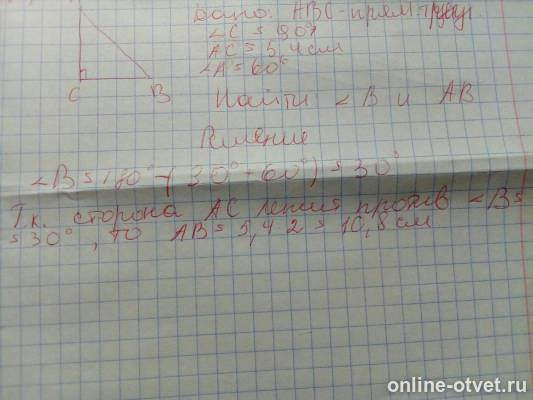 Дано: ABC - прям. треуг.
∠C = 90°
AC = 5,4 см
∠A = 60°
C B
Найти ∠B и AB
Решение
∠B = 180° - (90° + 60°) = 30°
Т.к. сторона AC лежит против ∠B =
= 30°, то AB = 5,4·2 = 10,8 см
online-otvet.ru